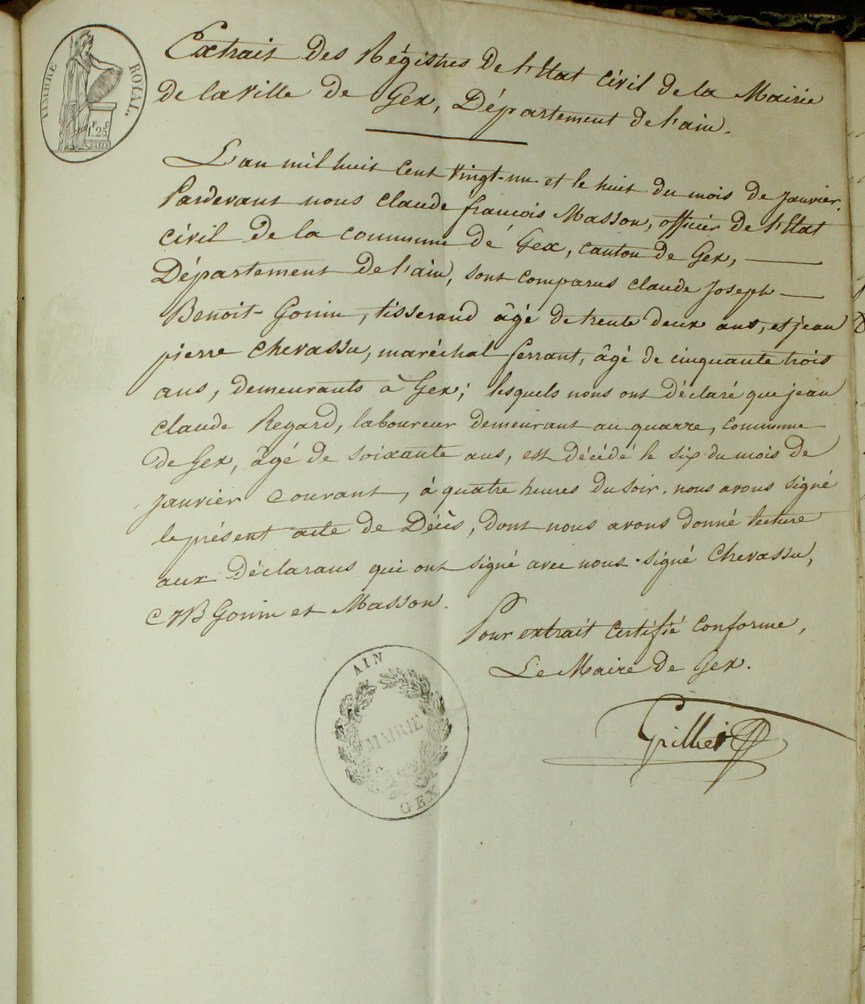 TIMBRE ROYAL.
1F 25C
Extrait des Régistres de l'Etat civil de la Mairie
de la ville de Gex, Département de l'ain.
L'an mil huit cent vingt-un et le huit du mois de Janvier.
Pardevant nous claude françois Masson, officier de l'Etat
civil de la commune dé Gex, canton de Gex,
Département de l'ain, sont comparus claude Joseph
Benoit Gonin, tisserand âgé de trente deux ans, et jean
pierre Chevassu, maréchal ferrant, âgé de cinquante trois
ans, demeurants à Gex; lesquels nous ont déclaré que jean
claude Regard, laboureur demeurant au quarre, commune
de Gex, âgé de soixante ans, est décédé le six du mois de
janvier courant, à quatre heures du soir. nous avons signé
le présent acte de Décès, dont nous avons donné lecture
aux déclarans qui ont signé avec nous. signé Chevassu,
Gonin et Masson.
Pour extrait certifié conforme,
Le Maire de Gex.
AIN
MAIRIE
GEX